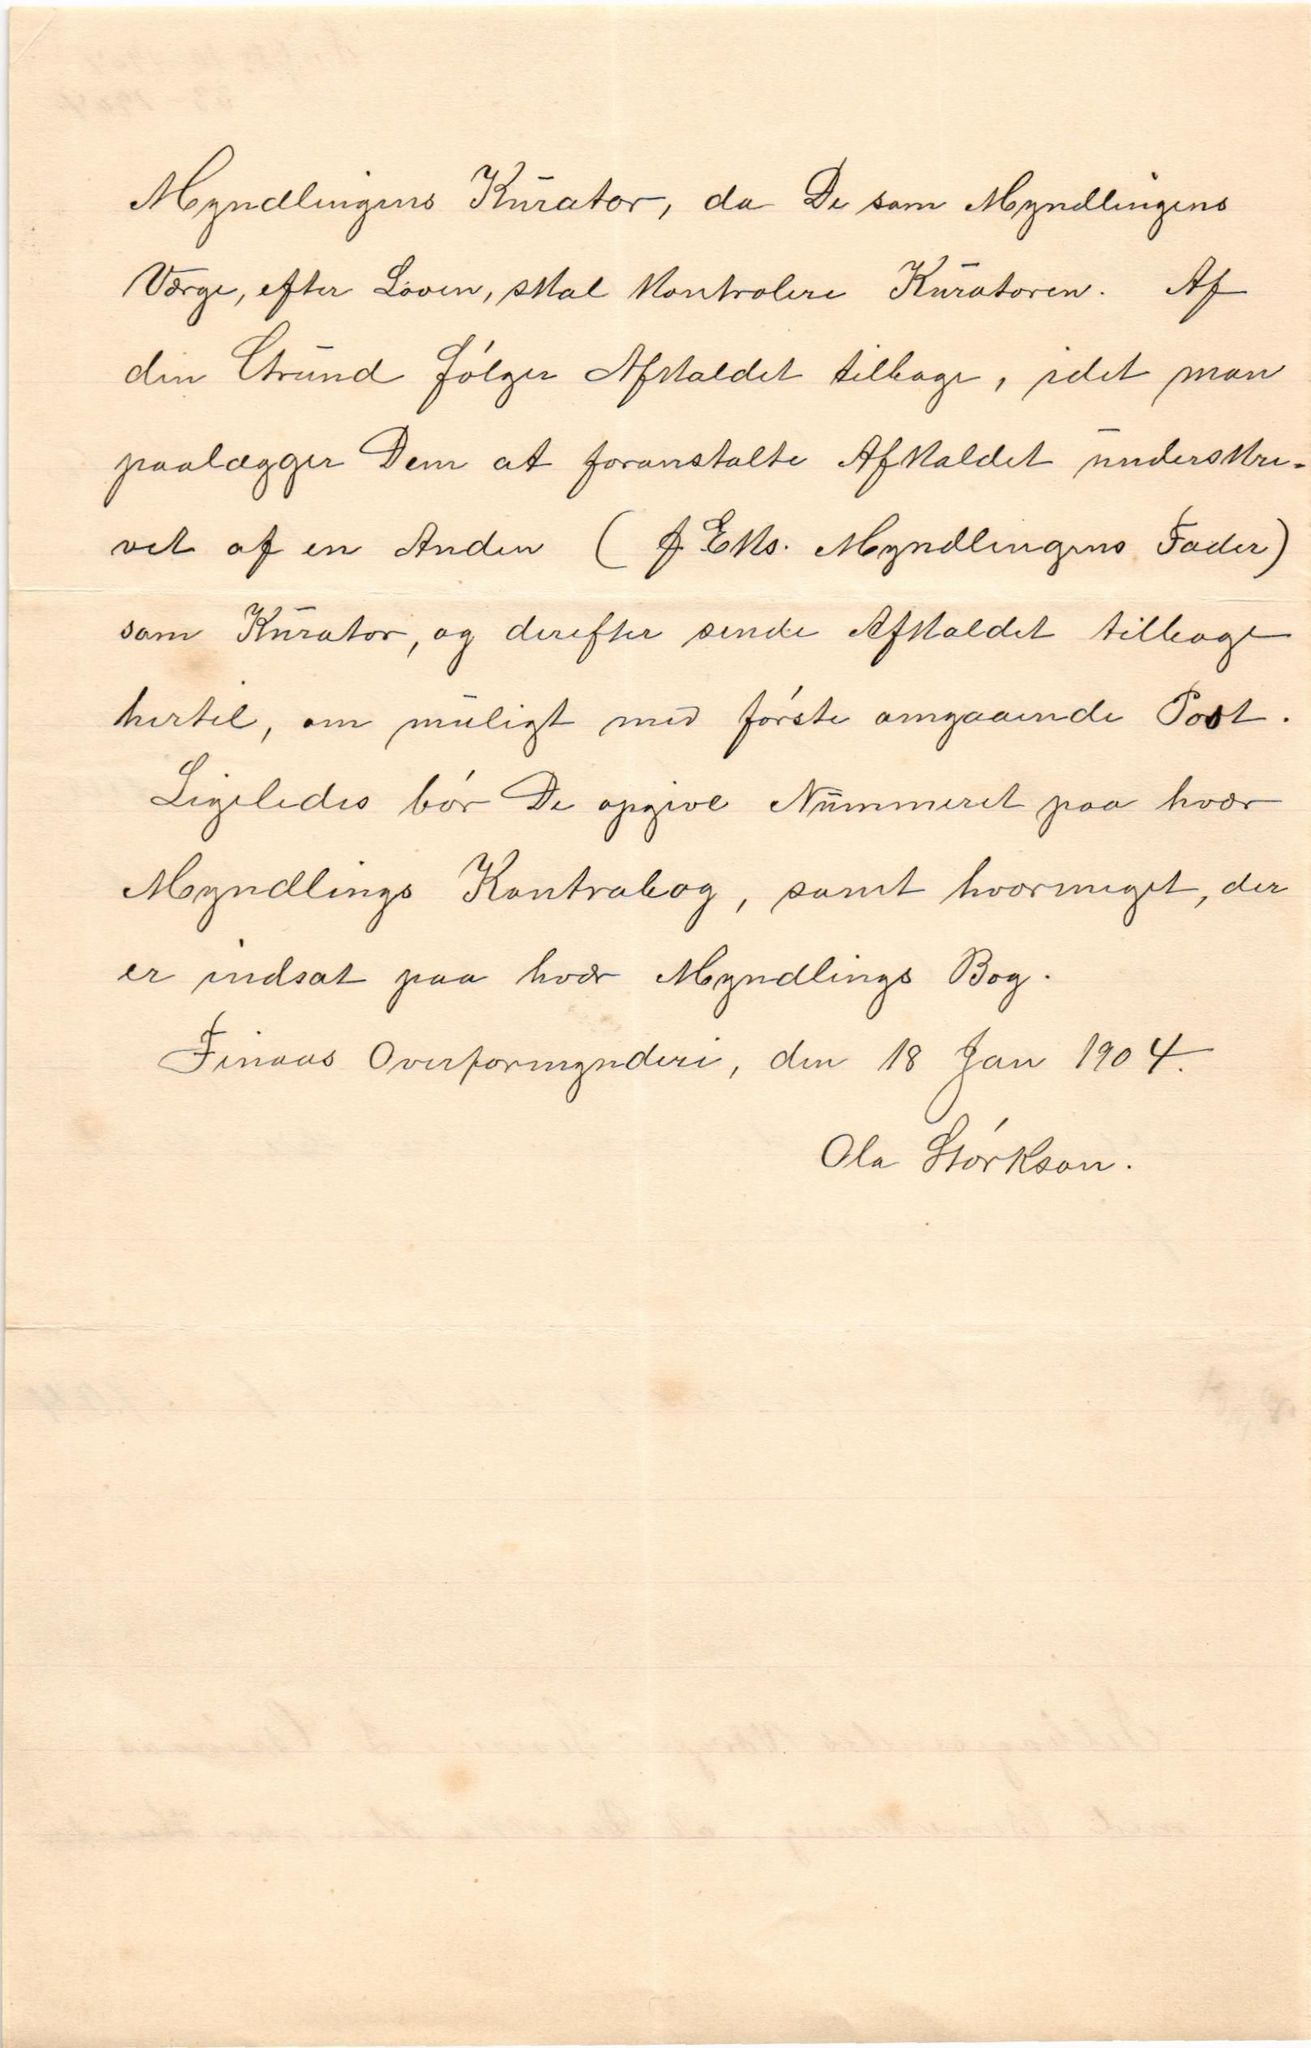 Myndlingens Kurator, da De som Myndlingens
Værge, efter Loven, skal kontrolere Kuratoren. Af
den Grund følger Afkaldet tilbage, idet man
paalægger Dem at foranstalte Afkaldet underskre-
vet af en Anden (f Eks. Myndlingens Fader)
som Kurator, og derefter sende Afkaldet tilbage
hertil, om muligt med første omgaaende Post.
Ligeledes bør De opgive Nummeret paa hver
Myndlings Kontrabog, samt hvormeget, der
er indsat paa hver Myndlings Bog.
Finaas Overformynderi, den 18 Jan 1904.
Ola Størkson.